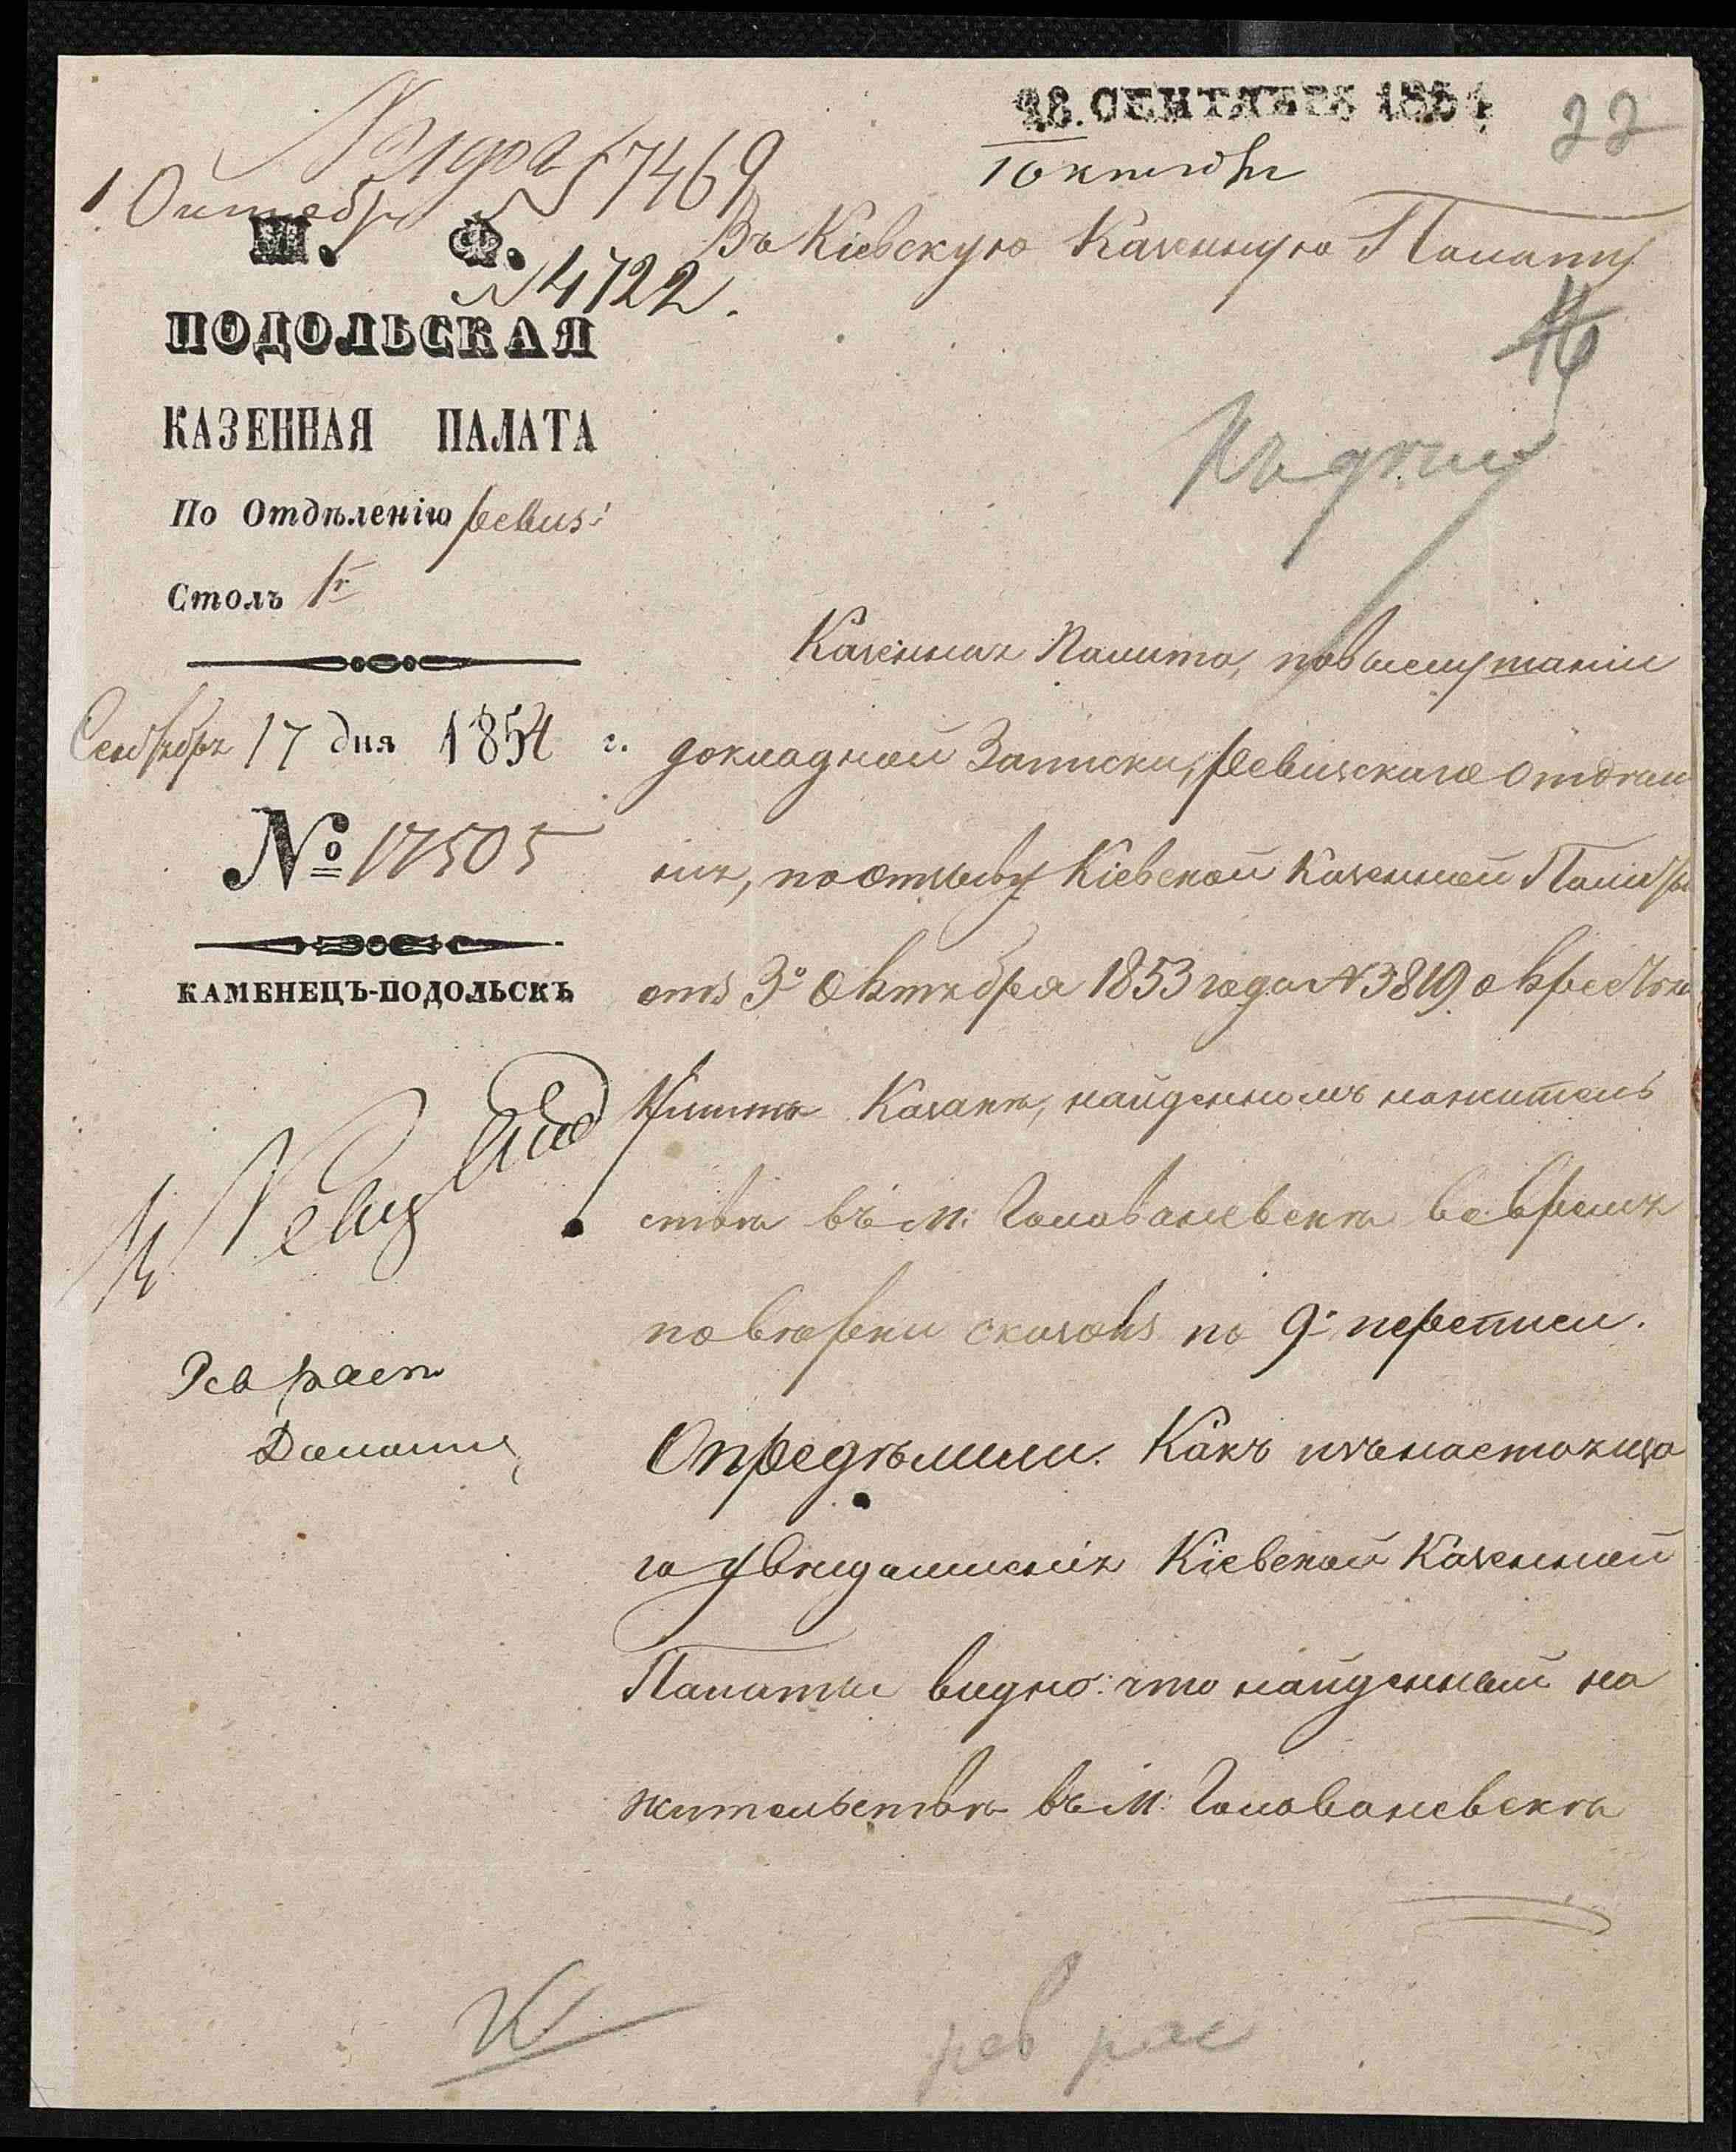 28. СЕНТЯБРЯ 1854
22
1 Октября
№ 17469
М. Ф.
№ 4722.
ПОДОЛЬСКАЯ
КАЗЕННАЯ ПАЛАТА
По Отдѣленію ревиз:
Столъ 1й
Сентября 17 дня 1854 г.
№ 17505
КАМЕНЕЦЪ-ПОДОЛЬСКЪ
Въ Кіевскую Казенную Палату
16
Къ дѣлу
Казенная Палата, по выслушаніи
докладной Записки, Ревизскаго Отдѣле
нія, по отзыву Кіевской Казенной Палаты
отъ 3го Октября 1853 года № 3819 о
Казакѣ, найденномъ на житель
ствѣ въ м: Голованевскѣ во время
повѣрки сказокъ по 9й переписи.
Опредѣлили. Какъ изъ настояща
го увѣдомленія Кіевской Казенной
Палаты видно: что найденный на
жительствѣ въ м: Голованевскѣ
рев рас